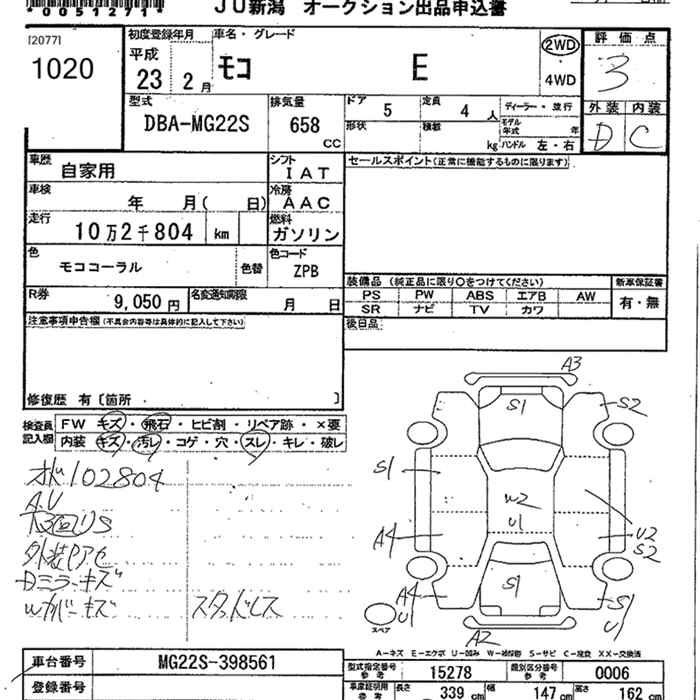 *0051271*
JU新潟 オークション出品申込書
[2077]
1020
初度登録年月 車名・グレード
平成
23 2月
モコ E
2WD
4WD
評価点
3
外装 内装
D C
型式
DBA-MG22S
排気量
658
CC
ドア 5
定員 4 人
形状
積載 kg
ディーラー・並行
モデル年式 年
ハンドル 左・右
車歴
自家用
シフト
IAT
車検
年 月( 日)
冷房
AAC
走行
10万2千804 km
燃料
ガソリン
色
モココーラル
色替
色コード
ZPB
R券
9,050円
名変通知期限
月 日
セールスポイント(正常に機能するものに限ります)
装備品(純正品に限り○をつけてください)
新車保証書
PS PW ABS エアB AW
SR ナビ TV カワ
有・無
後日品
注意事項申告欄(不具合内容等は具体的に記入して下さい)
修復歴 有〔箇所 〕
検査員記入欄
FW キズ・飛石・ヒビ割・リペア跡・×要
内装 キズ・汚レ・コゲ・穴・スレ・キレ・破レ
102804
外装
Dミラーキズ
Wカバーキズ
スタッドレス
A3
S1
S2
S1
W2
U1
A4
U2
S2
A4
U1
S1
S1
U1
A2
スペア
A-キズ E-エクボ U-凹み W-補修跡 S-サビ C-腐食 XX-交換済
車台番号
MG22S-398561
登録番号
型式指定番号
参考
15278
類別区分番号
参考
0006
車庫証明用
参考
長さ 339 cm
幅 147 cm
高さ 162 cm